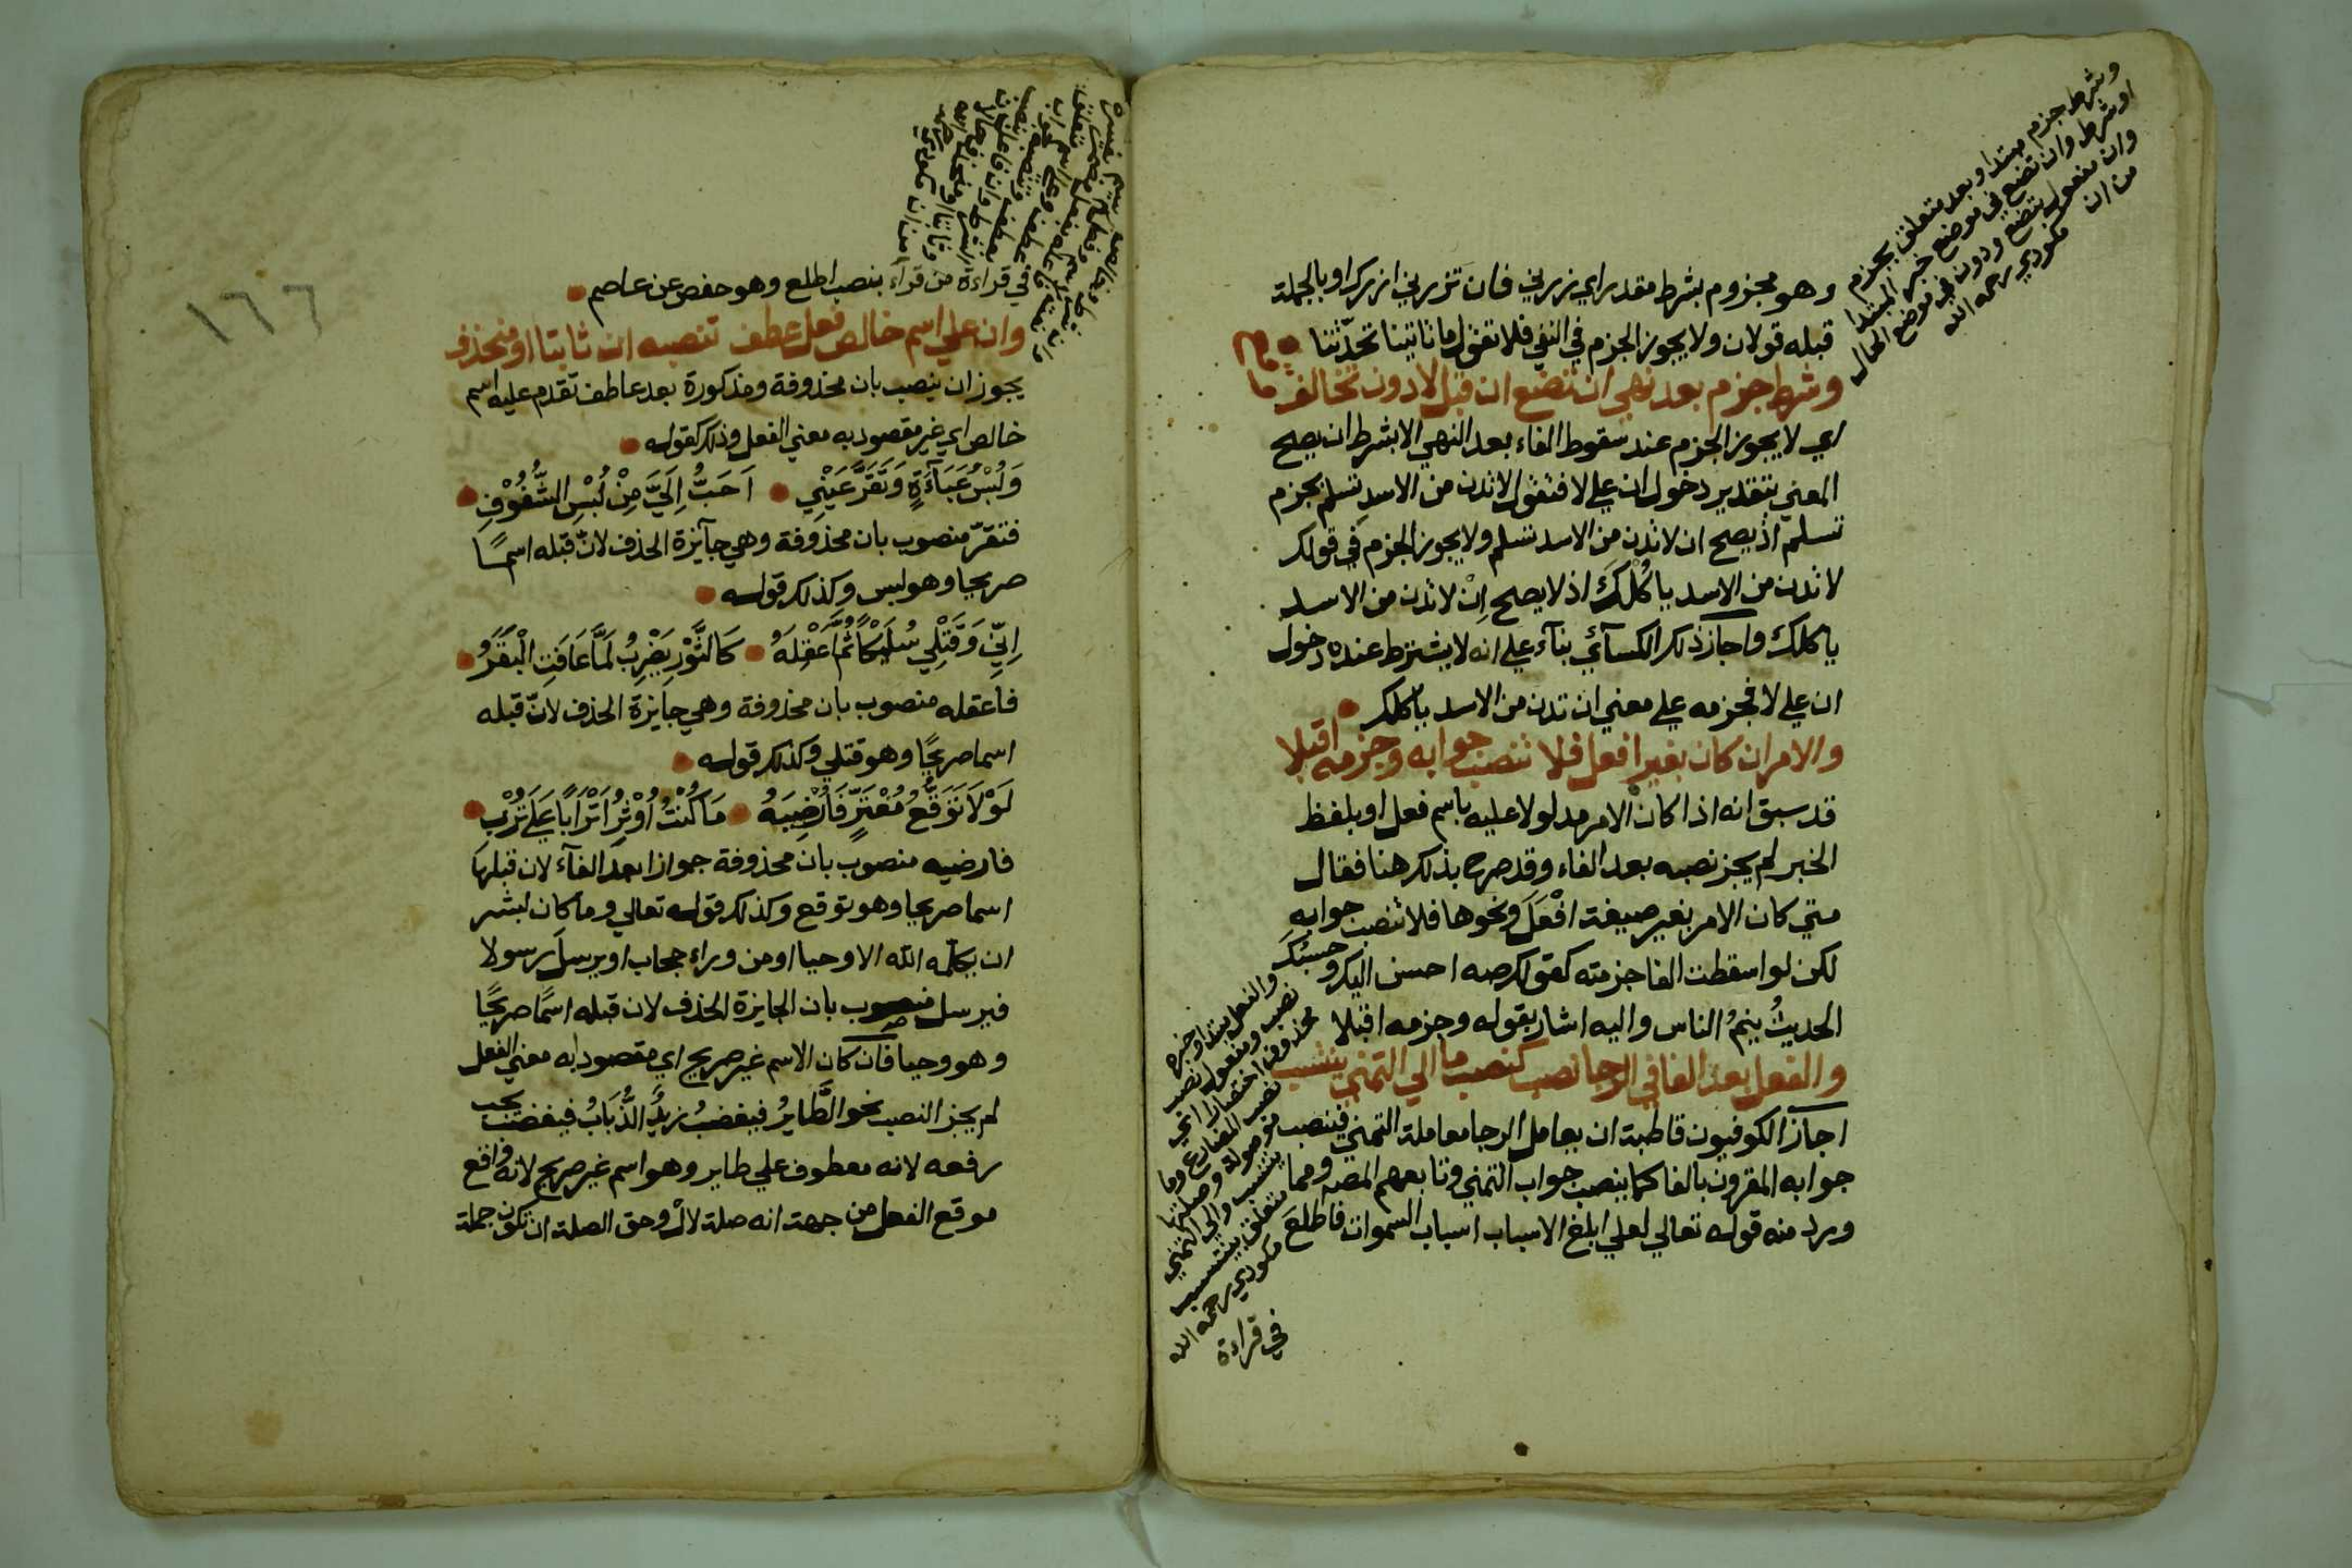 وهو مجزوم بشرط مقدر اي زرني فان تزرني ازرك او بالجملة
قبله قولان ولا يجوز الجزم في النفي فلا تقول ما تاتينا تحدّثنا
وشرط جزم بعد نهي ان تضع ان قبل لا دون تخالف
اي لا يجوز الجزم عند سقوط الفاء بعد النهي الا بشرط ان يصح
المعني بتقدير دخول ان علي لا فتقول لا تدن من الاسد تسلم بجزم
تسلم اذ يصح ان لا تدن من الاسد تسلم ولا يجوز الجزم في قولك
لا تدن من الاسد ياكلك اذ لا يصح اِنْ لا تدن من الاسد
ياكلك واجاز ذلك الكسآئي بنآء علي انه لا يشترط عنده دخول
ان علي لا فجزمه علي معني ان تدن من الاسد ياكلك
والامر ان كان بغير افعل فلا تنصب جوابه وجزمه اقبلا
قد سبق انه اذا كان الامر مدلولا عليه باسم فعل او بلفظ
الخبر لم يجز نصبه بعد الفاء وقد صرح بذلك هنا فقال
متي كان الامر بغير صيغة افْعَلَ ونحوها فلا تنصب جوابه
لكن لو اسقطت الفا جزمته كقولك صه احسن اليك وحسبُكَ
الحديثُ ينمُ الناس واليه اشار بقوله وجزمه اقبلا
والفعل بعد الفا في الرجا نصب كنصب ما الي التمني ينتسب
اجاز الكوفيون قاطبة ان يعامل الرجا معاملة التمني فينصب
جوابه المقرون بالفا كما ينصب جواب التمني وتابعهم المصه ومما
ورد منه قوله تعالي لعلي ابلغ الاسباب اسباب السموات فاطلعَ
وشرط جزم مبتدا وبعد متعلق بجزم
او شرط وان تضع في موضع خبر المبتدا
وان مفعول بتضع ودون في موضع الحال
من ان مكودي رحمه الله
والفعل مبتدا وخبره
نصب ومفعول نصب
محذوف اختصارا اي
نصب المضارع وما
موصولة وصلتها
ينتسب والي التمني
متعلق بينتسب
مكودي رحمه الله
في قراءة
١٦٦
في قراءة من قرآء بنصب اطلع وهو حفص عن عاصم
وان علي اسم خالص فعل عطف تنصبه ان ثابتا او منحذف
يجوز ان ينصب بان محذوفة ومذكورة بعد عاطف تقدم عليه اسم
خالص اي غير مقصود به معني الفعل وذلك كقوله
وَلُبْسُ عَبَآءَةٍ وَتَقَرَّ عَيْنِي اَحَبُّ اِلَيَّ مِنْ لُبْسِ الشُّفُوْفِ
فتقرّ منصوب بان محذوفة وهي جآئزة الحذف لانّ قبله اسمًا
صريحا وهو لبس وكذلك قوله
اِنِّي وَقَتْلِي سُلَيْكًا ثُمَّ اَعْقِلَهُ كَالثَّوْرِ يُضْرِبُ لَمَّا عَافَتِ الْبَقَرُ
فاعقله منصوب بان محذوفة وهي جايزة الحذف لانّ قبله
اسما صريحًا وهو قتلي وكذلك قوله
لَوْلَا تَوَقُّعُ مُعْتَرٍّ فَاُرْضِيَهُ مَا كُنْتُ اُوْثِرُ اَتْرَابًا عَلَى تُرْبِ
فارضيه منصوب بان محذوفة جوازا بعد الفآء لان قبلها
اسما صريحا وهو توقع وكذلك قوله تعالي وما كان لبشر
ان يكلّمه الله الا وحيا او من وراء حجاب او يرسلَ رسولا
فيرسل منصوب بان الجايزة الحذف لان قبله اسمًا صريحًا
وهو وحيا فان كان الاسم غير صريح اي مقصود به معني الفعل
لم يجز النصب نحو الطَّايرُ فيغضبُ زيدٌ الذُّبَابُ فيغضب يجب
رفعه لانه معطوف علي طاير وهو اسم غير صريح لانه واقع
موقع الفعل من جهة انه صلة لالْ وحق الصلة ان تكون جملة